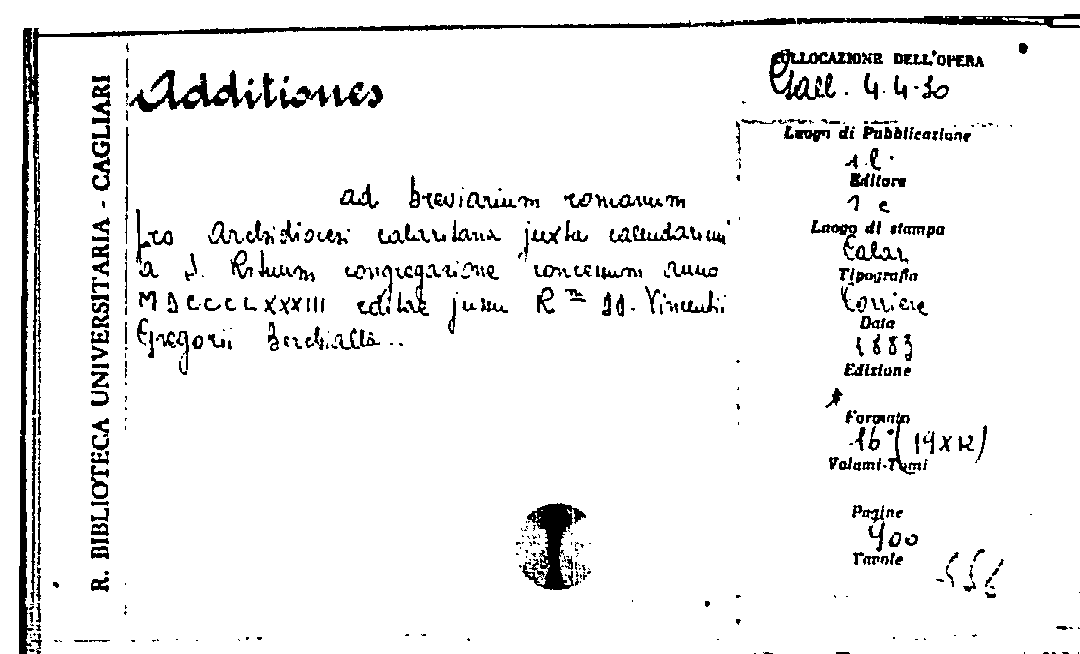 R. BIBLIOTECA UNIVERSITARIA - CAGLIARI
Additiones
ad breviarium romanum
pro Archidiocesi calaritana juxta calendarium
a S. Rituum congregazione concessum anno
MDCCCCLXXXIII editae jussu R m DD. Vincentii
Gregorii Berchialla..
COLLOCAZIONE DELL'OPERA
Gall. 4.4.30
Luogo di Pubblicazione
s.l.
Editore
s e
Luogo di stampa
Calar.
Tipografia
Corriere
Data
1883
Edizione
Formato
16° (19x12)
Volumi-Tomi
Pagine
400
Tavole